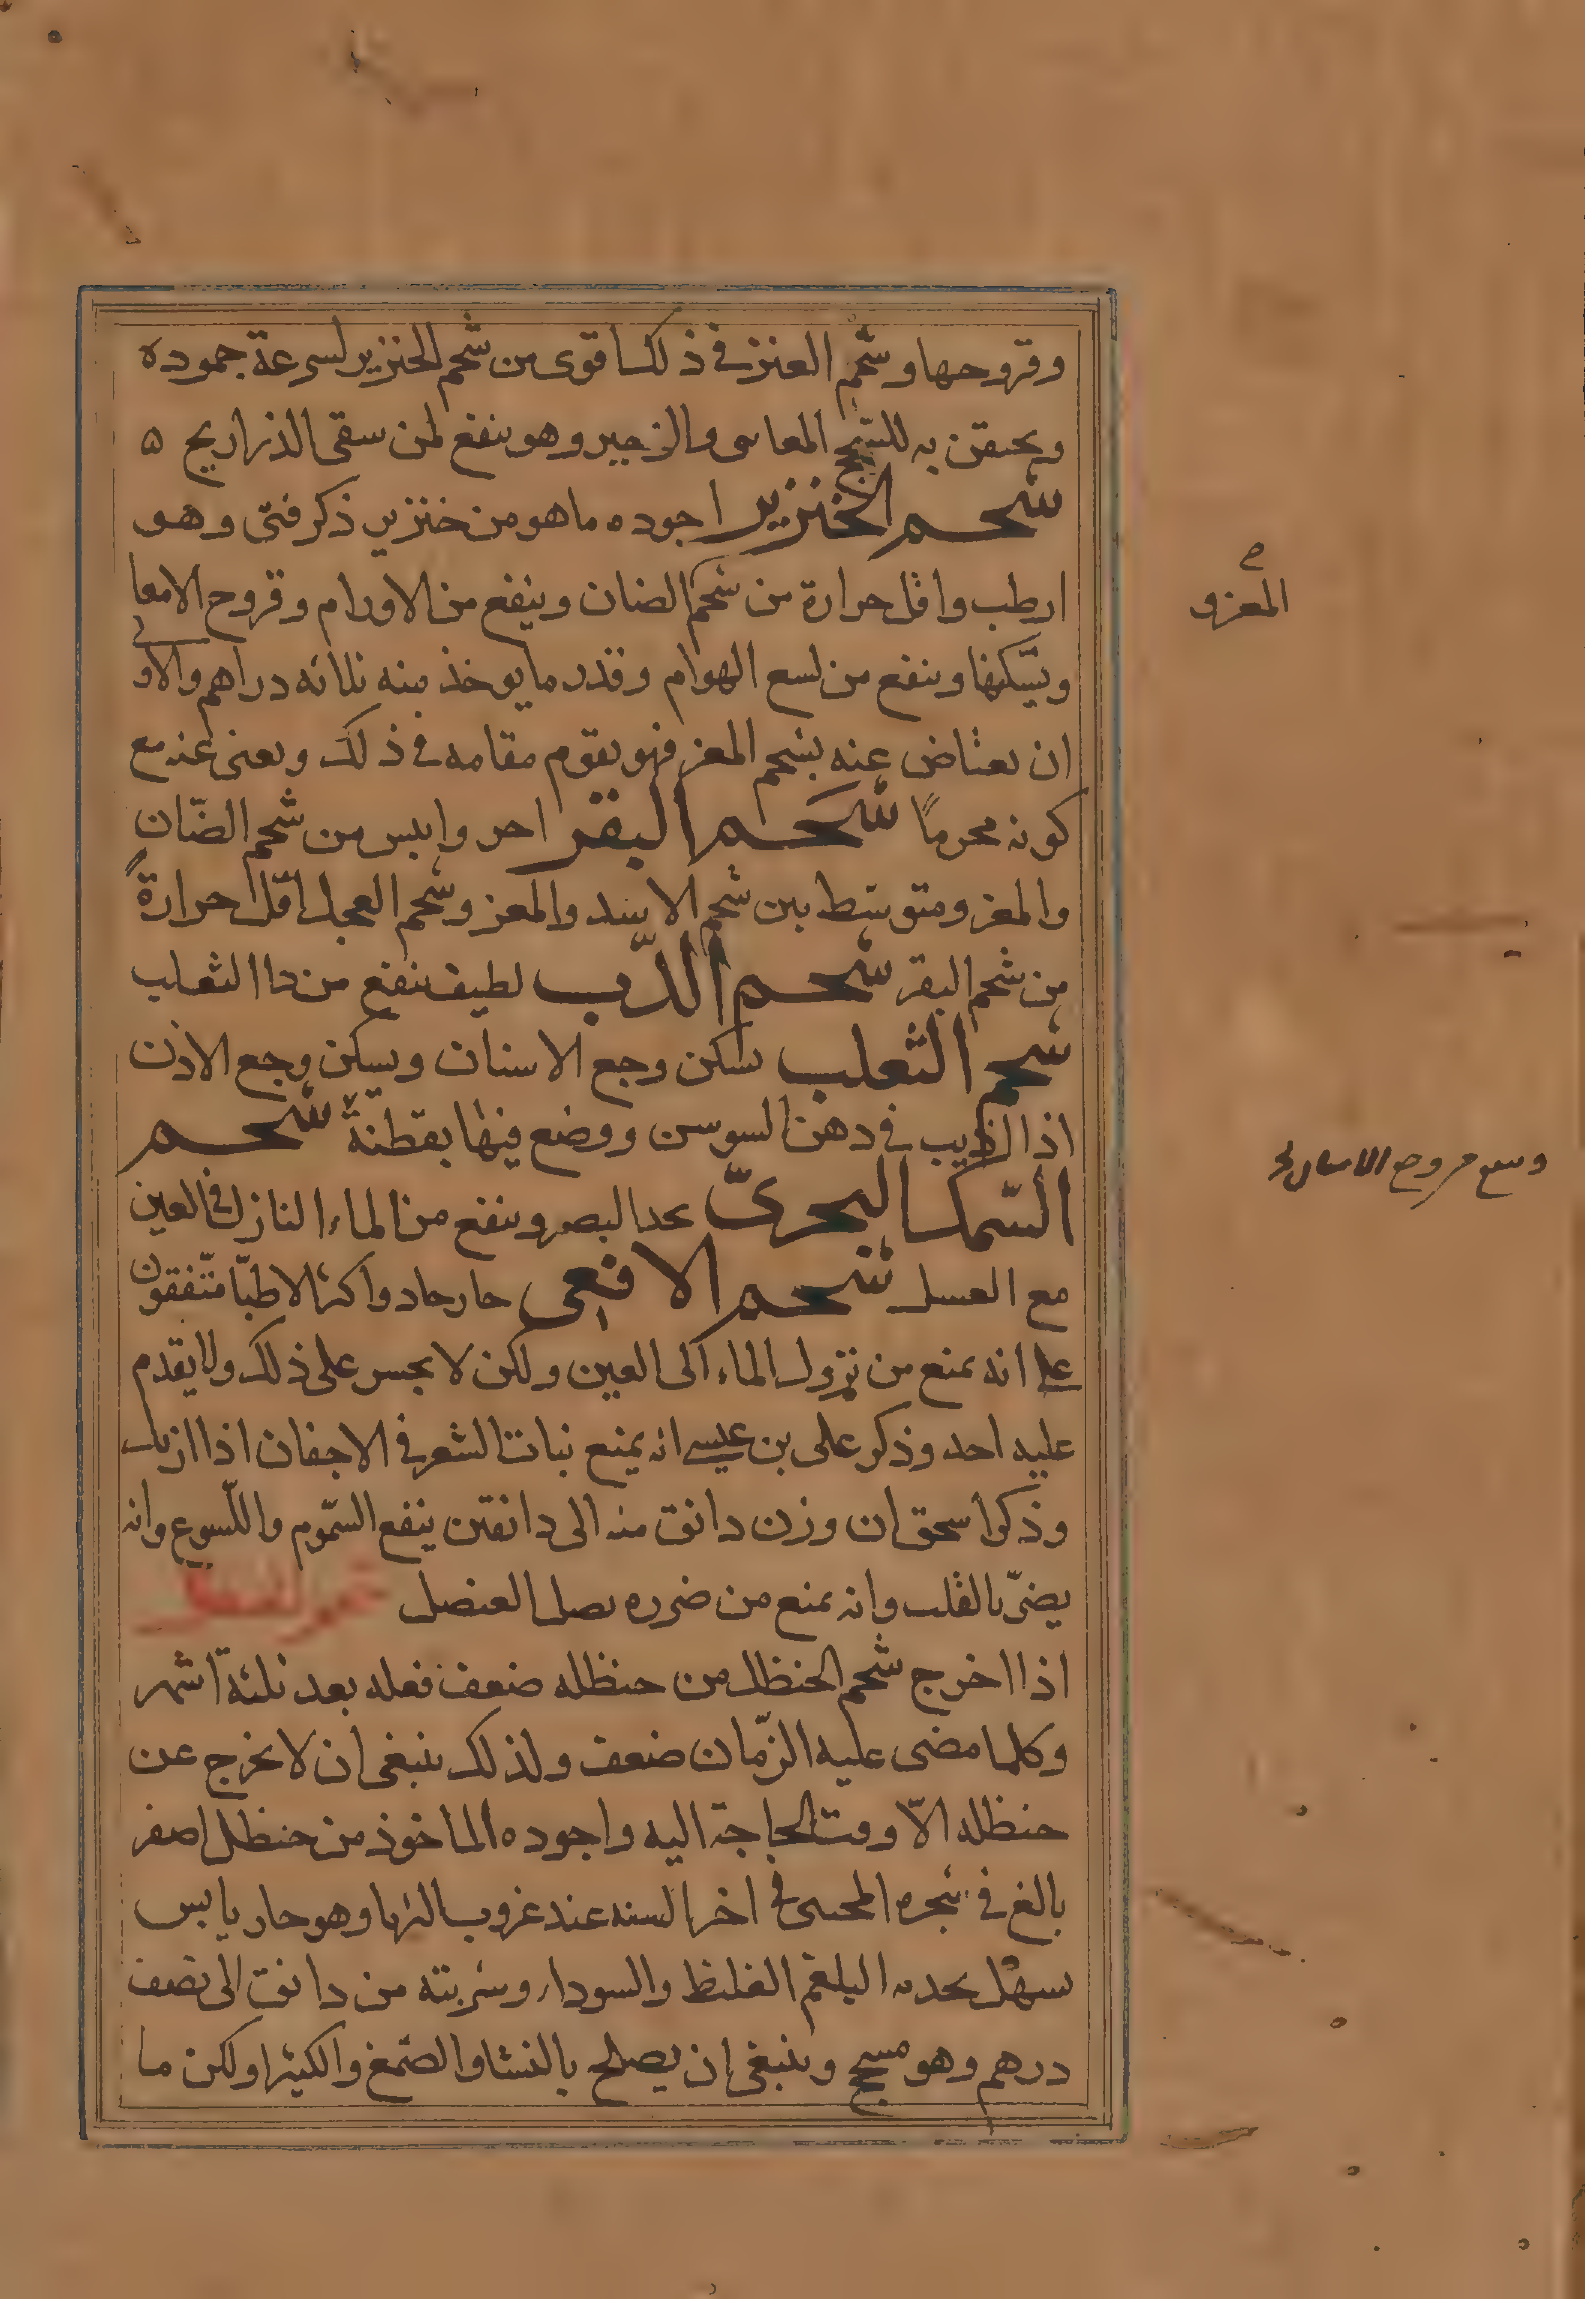 وقروحها وشحم العنز في ذلك اقوى من شحم الخنزير لسرعة جموده
ويحتقن به للسحج المعاى والزحير وهو ينفع لمن سقى الذراريح ه
شحم الخنزير اجوده ما هو من خنزير ذكر فتى وهو
ارطب واقل حرارة من شحم الضان وينفع من الاورام وقروح الامعا
ويسكنها وينفع من لسع الهوام وقدر ما يوخذ منه ثلاثه دراهم والاولى
ان يعتاض عنه بشحم المعز فهو يقوم مقامه في ذلك ويغنى عنه مع
كونه محرمًا شحم البقر احر وايبس من شحم الضّان
والمعز ومتوسط بين شحم الاسد والمعز وشحم العجل اقل حرارةً
من شحم البقر شحم الدّب لطيف ينفع من دا الثعلب
شحم الثعلب يسكن وجع الاسنان ويسكن وجع الاذن
اذا اذيب في دهن السوسن ووضع فيها بقطنة شحم
السّمك البحرىّ يحد البصر وينفع من الماء النازل في العين
مع العسل شحم الافعى حار حاد واكثر الاطبّا متّفقون
على انه يمنع من نزول الماء الى العين ولكن لا يجسر على ذلك ولا يقدم
عليه احد وذكر على بن عيسى انه يمنع نبات الشعر في الاجفان اذا ازيل
وذكر اسحق ان وزن دانق منه الى دانقين ينفع السّموم واللّسوع وانه
يضرّ بالقلب وانه يمنع من ضرره بصل العنصل شحم الحنظل
اذا اخرج شحم الحنظل من حنظله ضعف فعله بعد ثلثة اشهر
وكلما مضى عليه الزّمان ضعف ولذلك ينبغى ان لا يخرج عن
حنظله الاّ وقت الحاجة اليه واجوده الماخوذ من حنظل اصفر
بالغ في شجره المجتنى في اخر السنه عند غروب الثريا وهو حار يابس
يسهل بحدته البلغم الغليظ والسوداء وشربته من دانق الى نصف
درهم وهو مسحج وينبغى ان يصلح بالنشا والصّمغ والكثيرا ولكن ما
المعز و